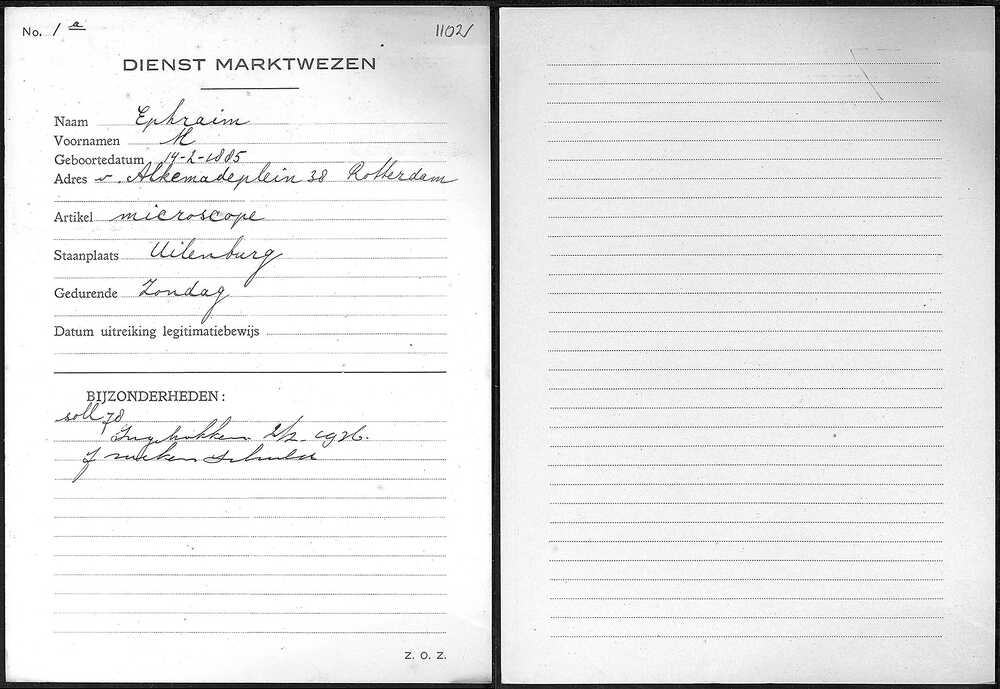 No. 1 a 1102/
DIENST MARKTWEZEN
Naam Ephraim
Voornamen M
Geboortedatum 14-2-1885
Adres v. Alkemadeplein 38 Rotterdam
Artikel microscope
Staanplaats Uilenburg
Gedurende Zondag
Datum uitreiking legitimatiebewijs
BIJZONDERHEDEN:
soll 78
Ingetrokken 2/2 1926.
weken schuld
Z. O. Z.